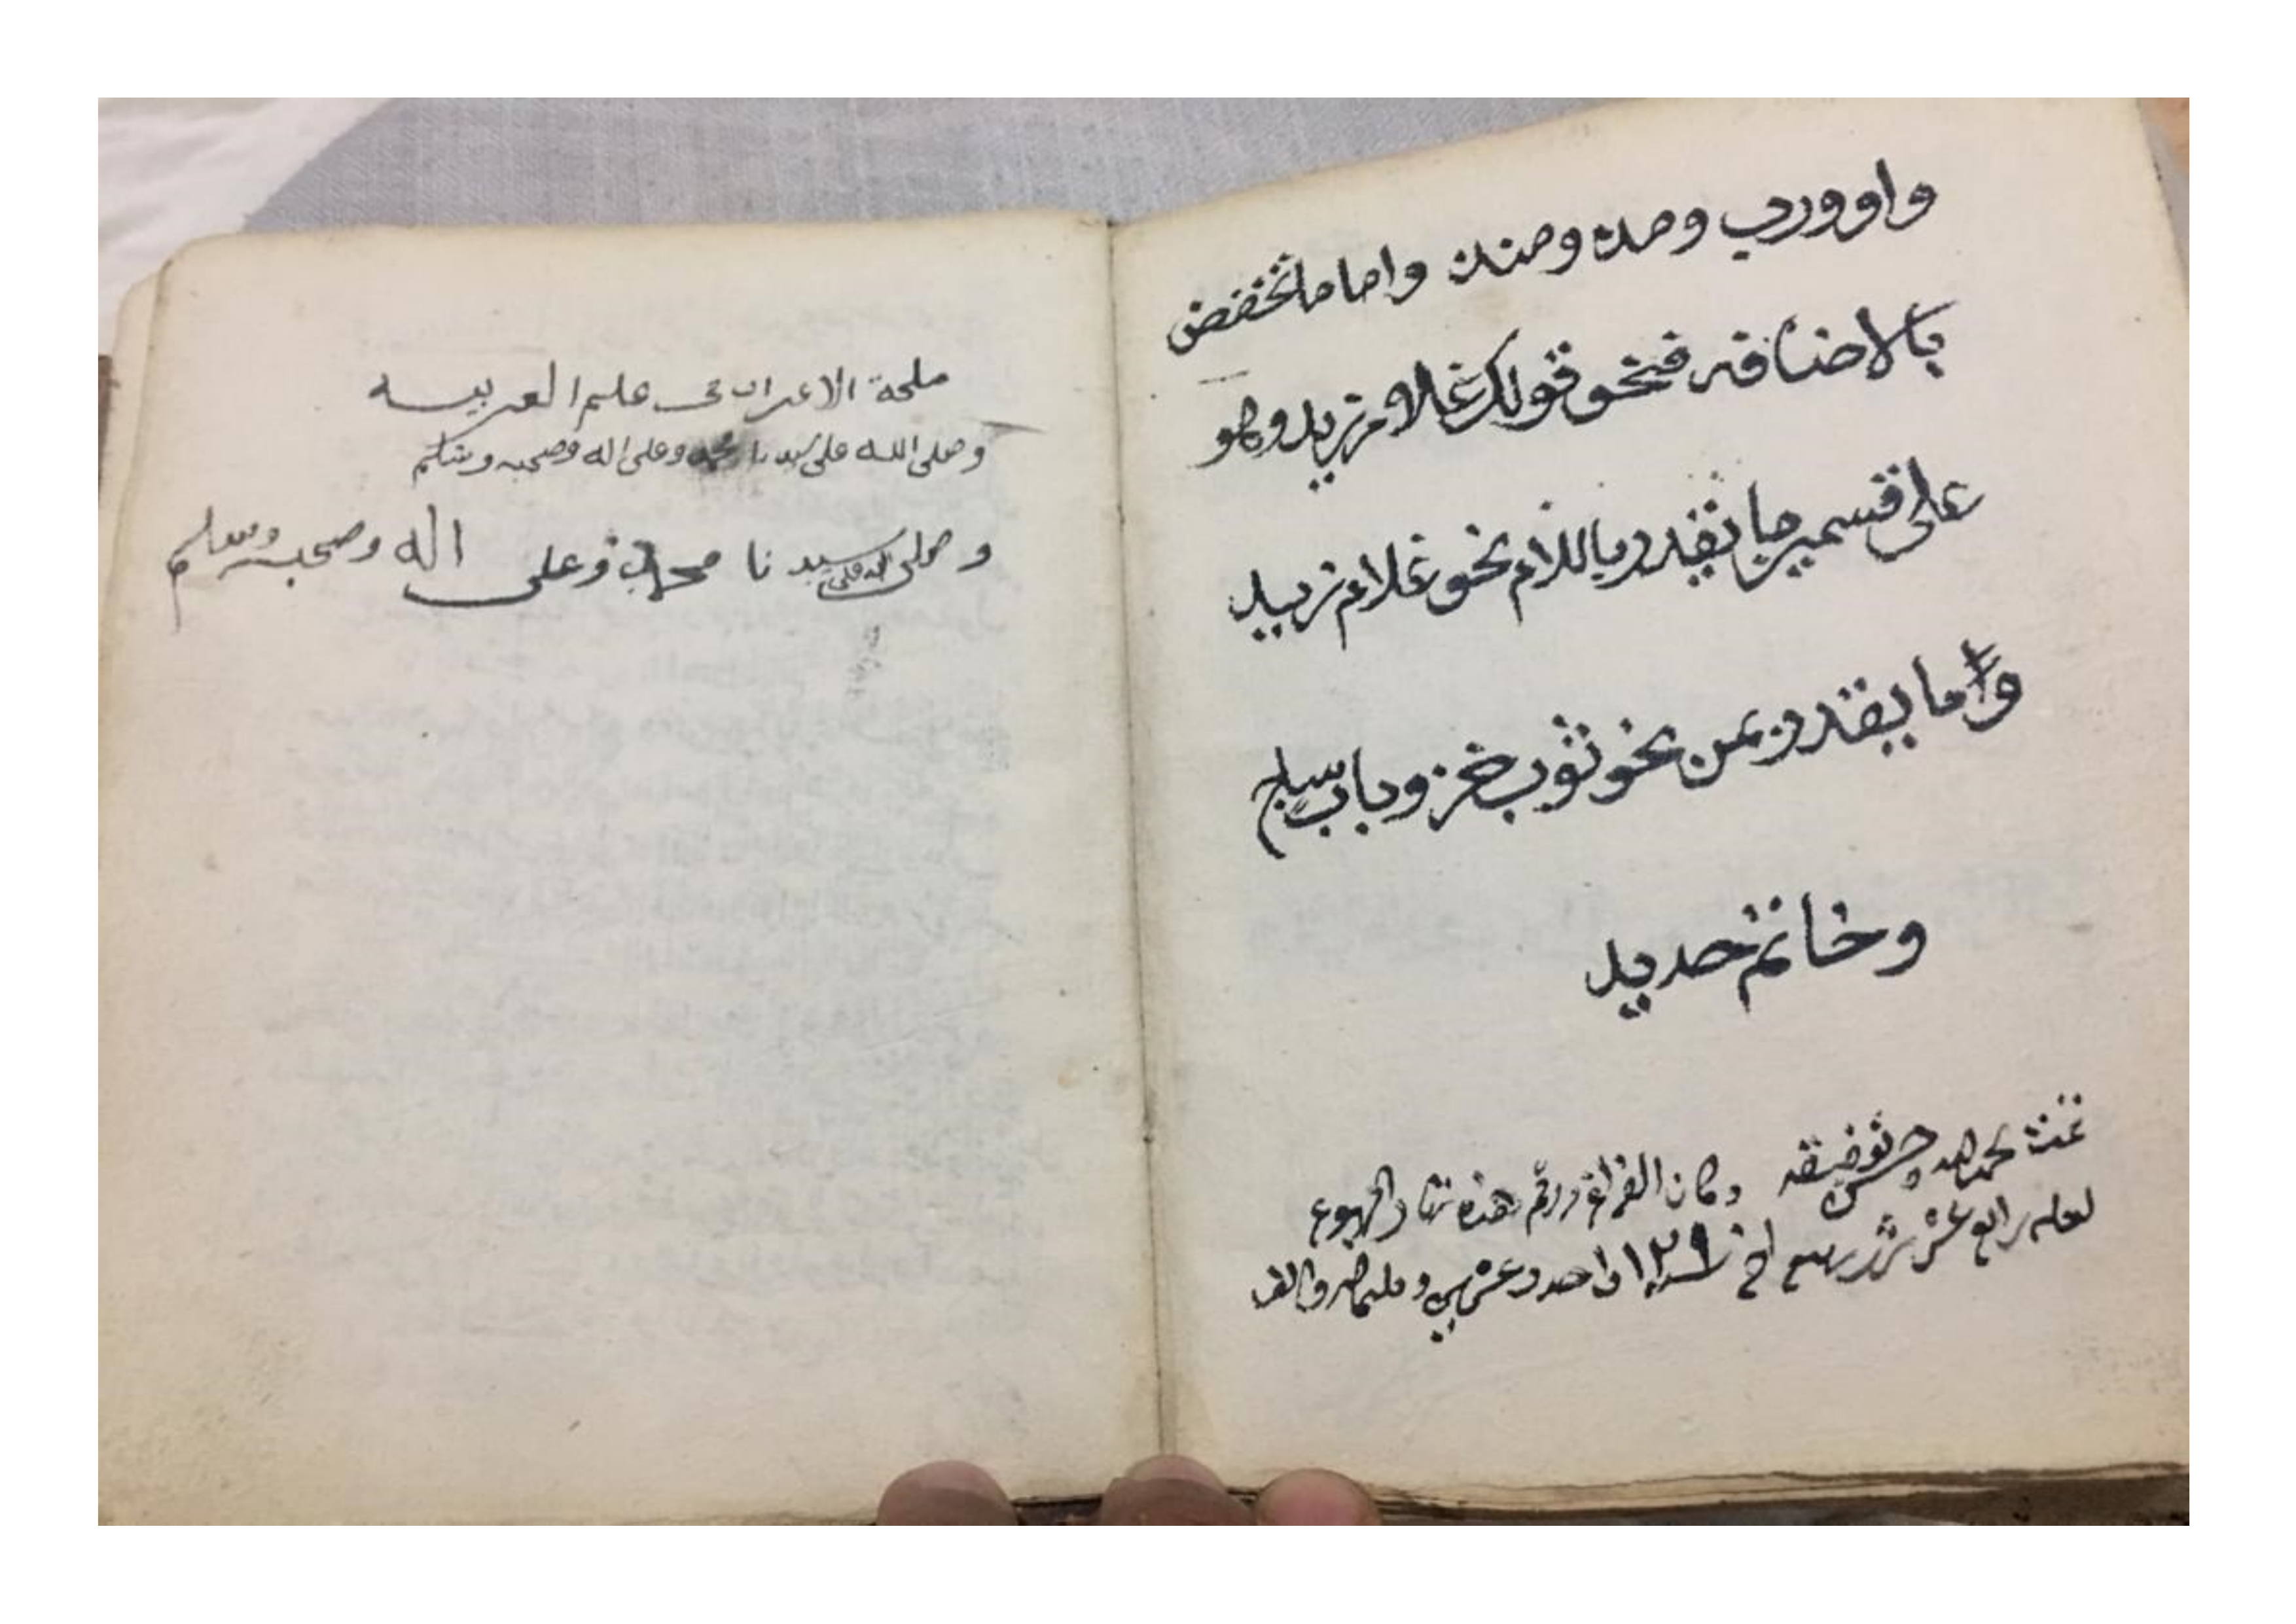 واو ورب ومذ ومنذ واما ما تخفض
بالاضافه فنحو قولك غلام زيد وهو
على قسمين ما يقدر باللام نحو غلام زيد
واما يقدر بمن نحو ثوب خز وباب ساج
وخاتم حديد
تمت بحمد الله وحسن توفيقه وكان الفراغ ورقم هذه نهار الربوع
لعله رابع عشر شهر ربيع اخر سنة واحد وعشرين وماتين والف
ملحة الاعراب في علم العربيه
وصلى الله على سيدنا محمد وعلى اله وصحبه وسلم
وصلى الله على سيدنا محمد وعلى اله وصحبه وسلم